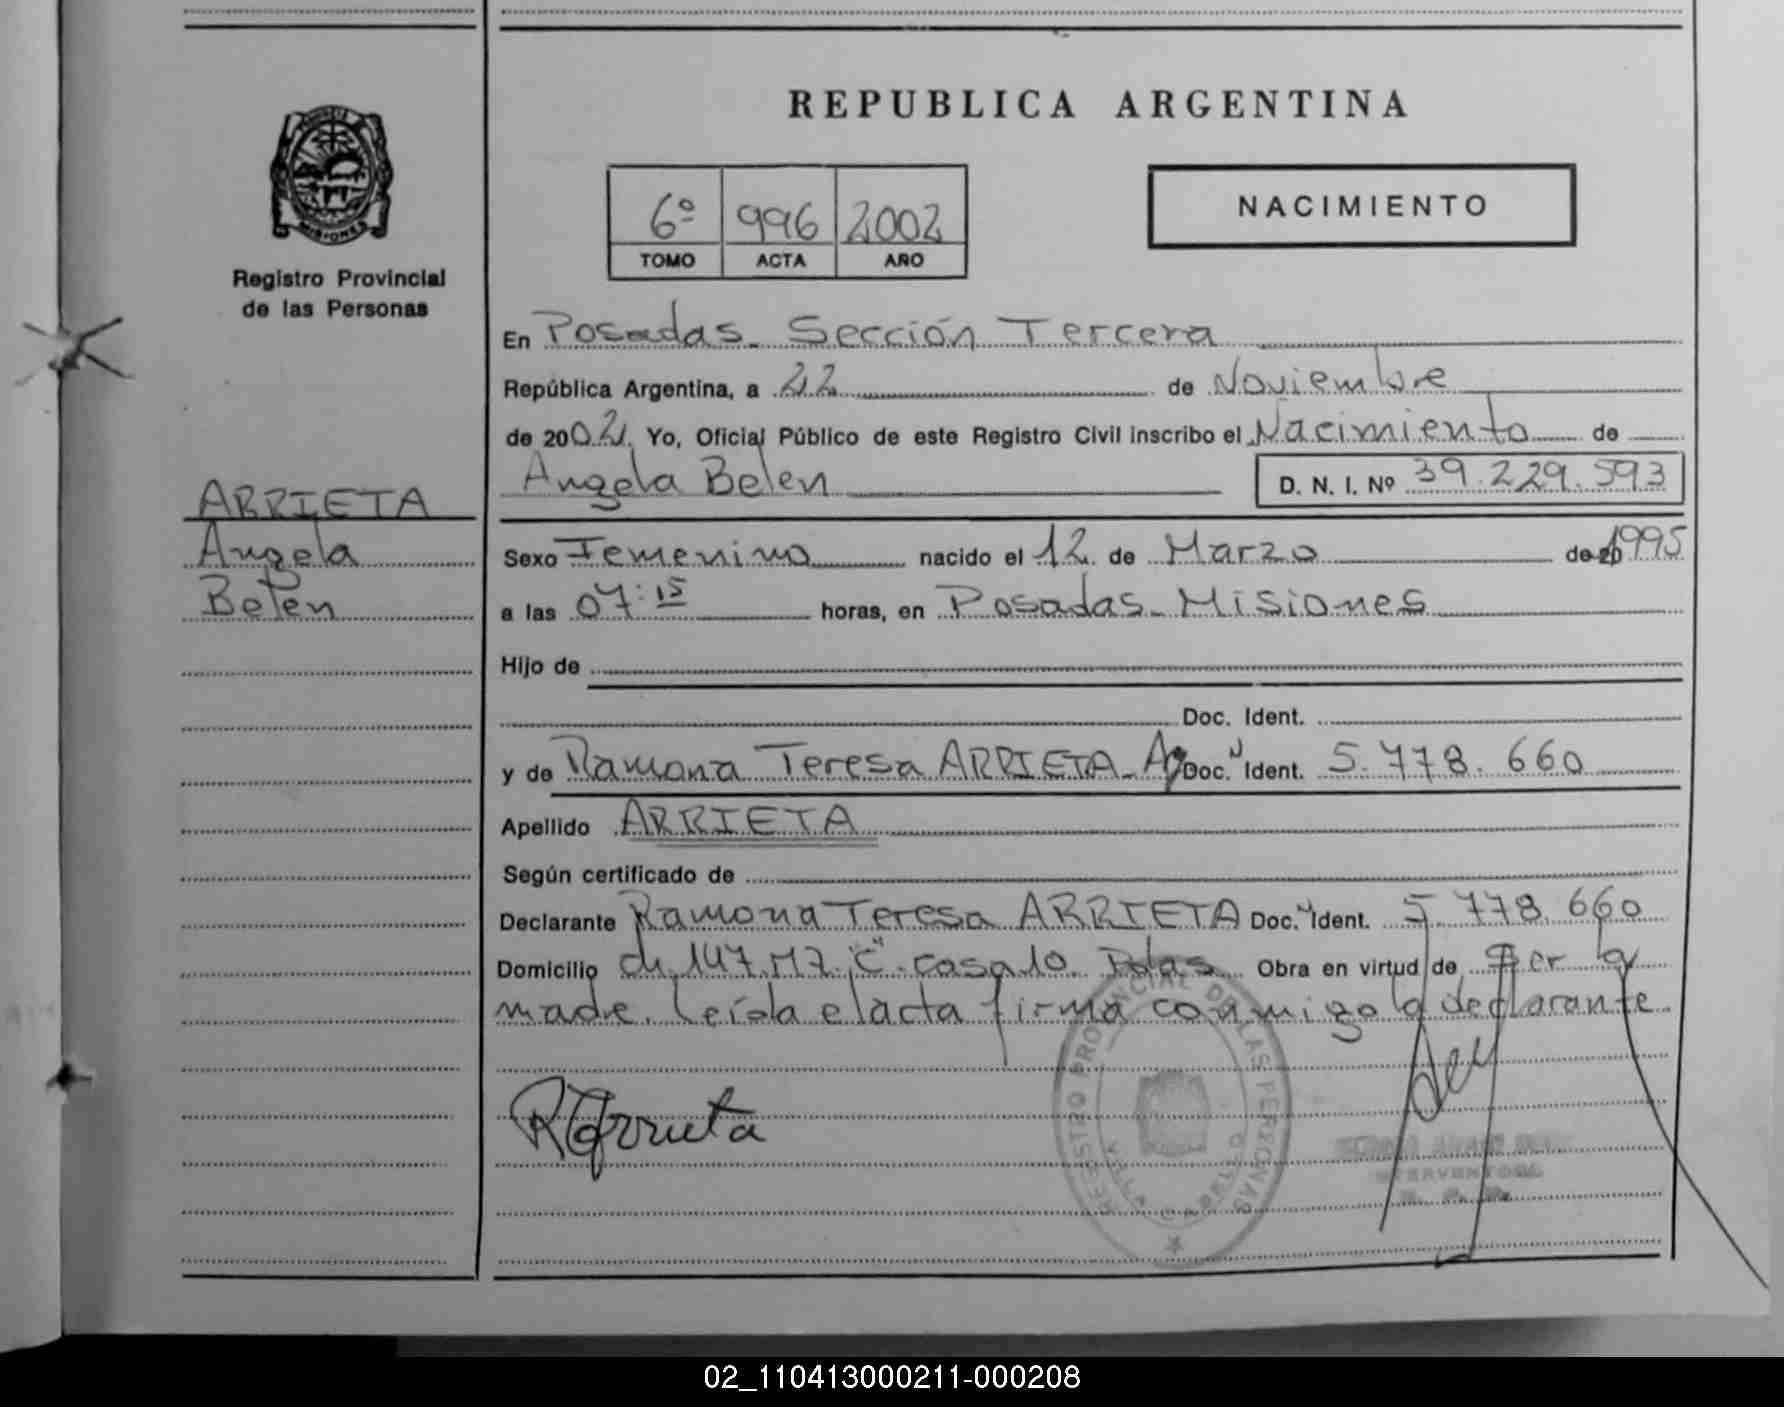 REPUBLICA ARGENTINA
MISIONES
Registro Provincial
de las Personas
6º 996 2002
TOMO ACTA AÑO
NACIMIENTO
En Posadas. Sección Tercera
República Argentina, a 22 de Noviembre
de 2002. Yo, Oficial Público de este Registro Civil inscribo el Nacimiento de
Angela Belen D. N. I. Nº 39.229.593
ARRIETA
Angela
Belen
Sexo Femenino nacido el 12 de Marzo de 20 1995
a las 07:15 horas, en Posadas - Misiones
Hijo de
Doc. Ident.
y de Ramona Teresa ARRIETA - Doc. Ident. 5.778.660
Apellido ARRIETA
Según certificado de
Declarante Ramona Teresa ARRIETA Doc. Ident. 5.778.660
Domicilio ch 147 M7. "C" casa 10 Pdas Obra en virtud de ser la
madre. Leída el acta firma conmigo la declarante.
RTArrieta
REGISTRO PROVINCIAL DE LAS PERSONAS
VILLA CABELLO
02_110413000211-000208